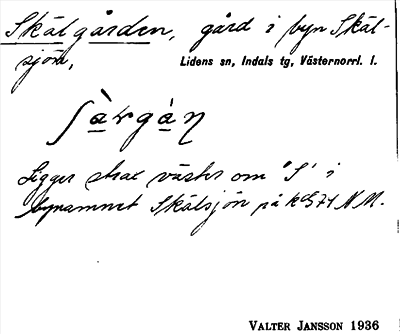 Skälgården, gård i byn Skäl-
sjön,
Lidens sn, Indals tg, Västernorrl. l.
Ligger strax väster om "S" i
bynamnet Skälsjön på
VALTER JANSSON 1936